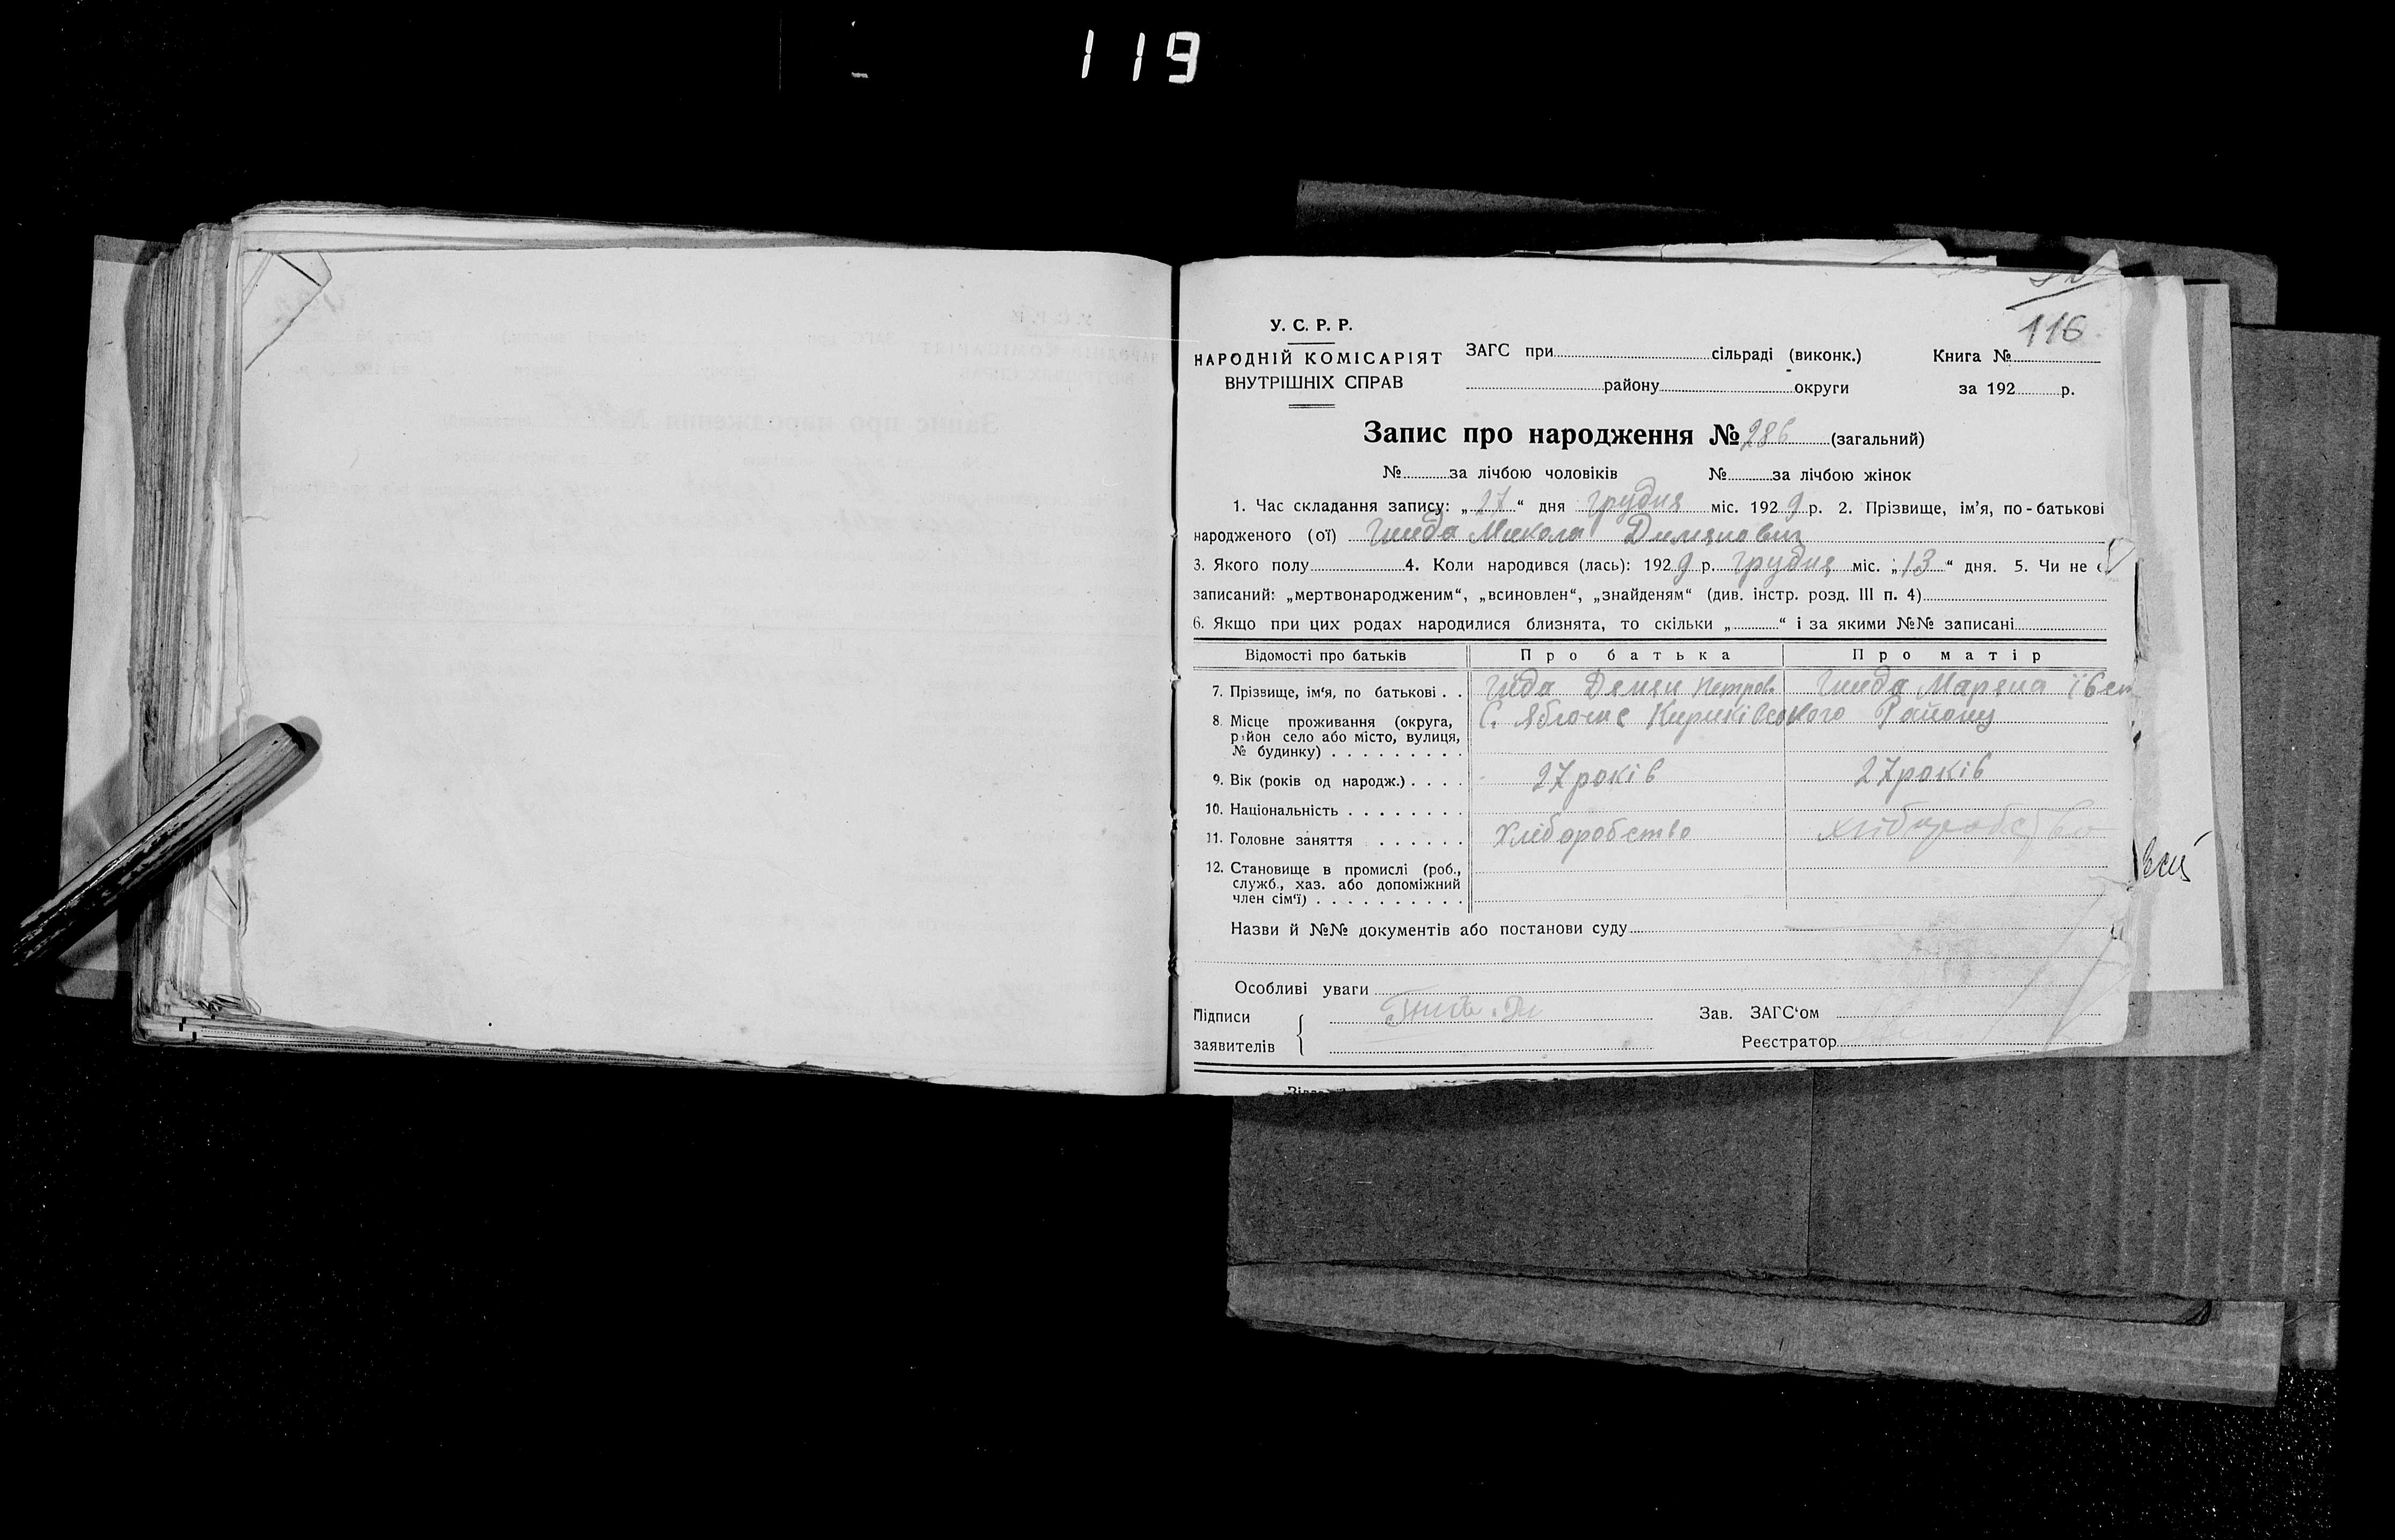 119
116
У. С. Р. Р.
НАРОДНІЙ КОМІСАРІЯТ
ВНУТРІШНІХ СПРАВ
ЗАГС при сільраді (виконк.)
району округи
Книга №
за 192 р.
Запис про народження № 286 (загальний)
№ за лічбою чоловіків № за лічбою жінок
1. Час складання запису: „27“ дня грудня міс. 1929 р. 2. Прізвище, ім'я, по-батькові
народженого (ої) Микола
3. Якого полу 4. Коли народився (лась): 1929 р. грудня міс. „13“ дня. 5. Чи не є
записаний: „мертвонародженим“, „всиновлен“, „знайденям“ (див. інстр. розд. III п. 4)
6. Якщо при цих родах народилися близнята, то скільки „ “ і за якими №№ записані
Відомості про батьків Про батька Про матір
7. Прізвище, ім'я, по батькові . . Петров.
8. Місце проживання (округа, С. Району
район село або місто, вулиця,
№ будинку) . . . . . . . . .
9. Вік (років од народж.) . . . . 27 років 27 років
10. Національність . . . . . . . .
11. Головне заняття . . . . . . Хліборобство хліборобство
12. Становище в промислі (роб.,
служб., хаз. або допоміжний
член сім'ї) . . . . . . . . . .
Назви й №№ документів або постанови суду
Особливі уваги
Підписи
заявителів
Зав. ЗАГС'ом
Реєстратор